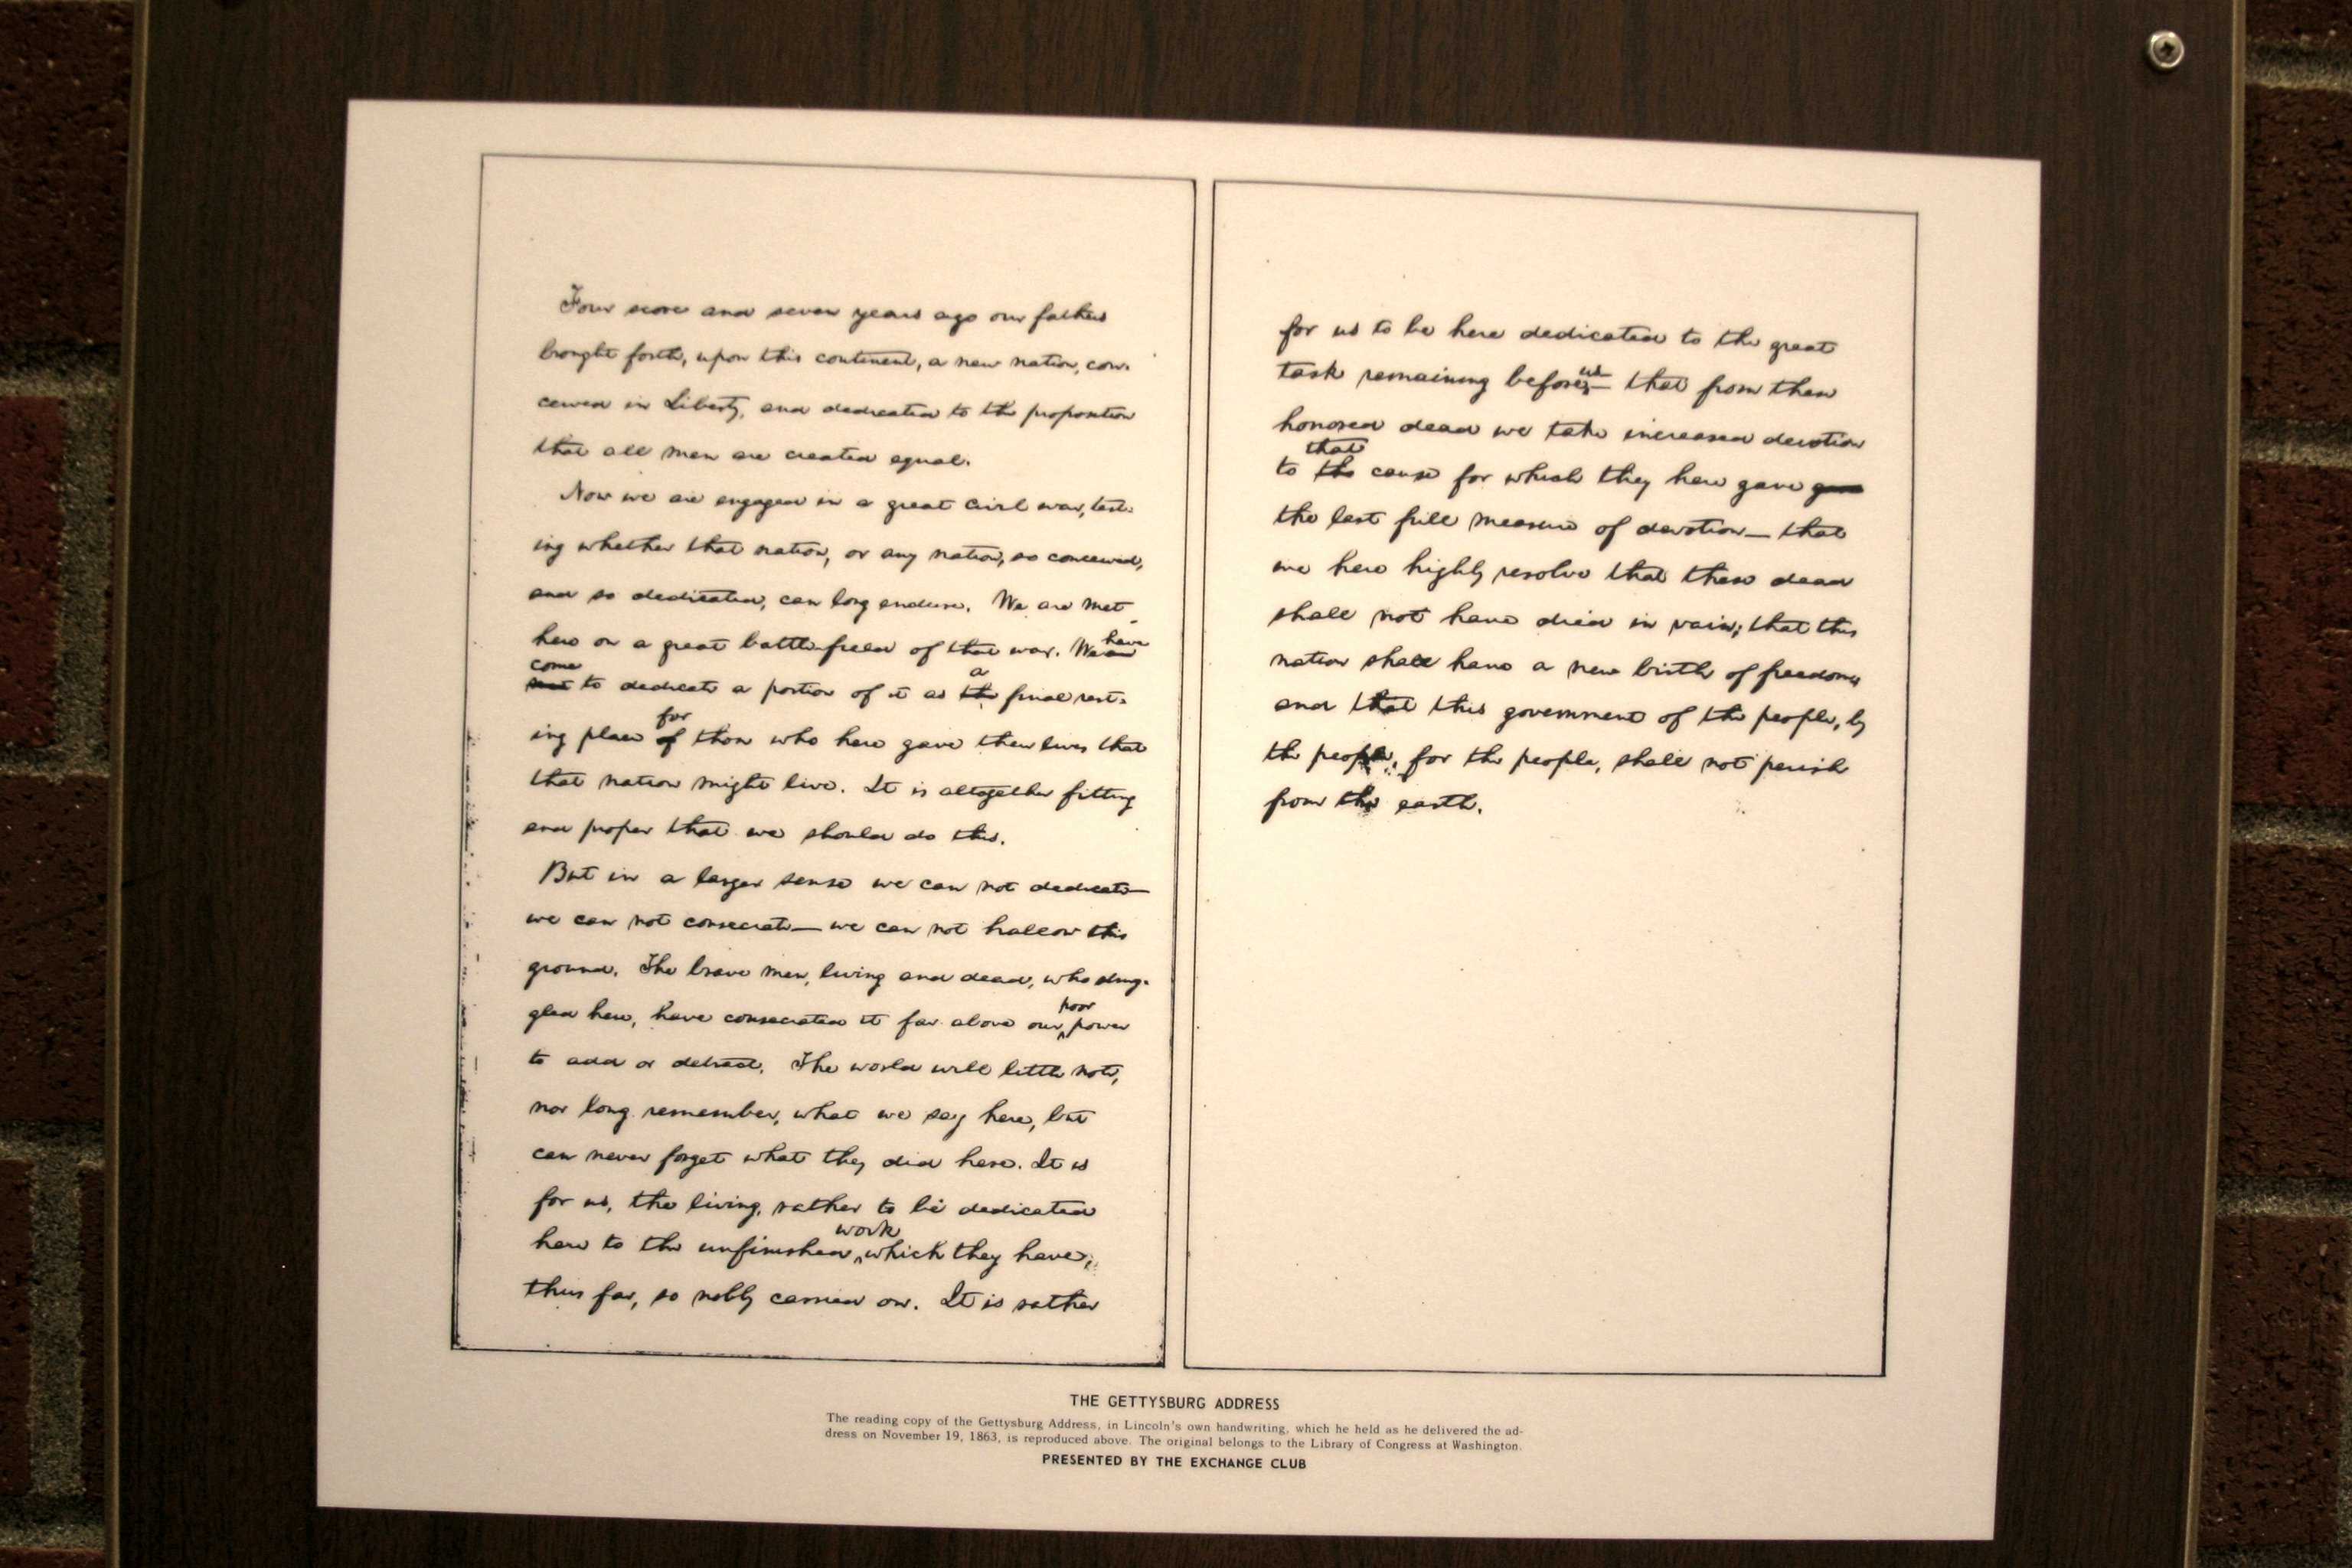 Four score and seven years ago our fathers
brought forth, upon this continent, a new nation, con-
ceived in Liberty, and dedicated to the proposition
that all men are created equal.
Now we are engaged in a great civil war, test-
ing whether that nation, or any nation, so conceived,
and so dedicated, can long endure. We are met
here on a great battle-field of that war. We are
have
come
met to dedicate a portion of it as the final rest-
a
ing place of those who here gave their lives that
for
that nation might live. It is altogether fitting
and proper that we should do this.
But in a larger sense we can not dedicate—
we can not consecrate— we can not hallow this
ground. The brave men, living and dead, who strug-
gled here, have consecrated it far above our power
poor
to add or detract. The world will little note,
nor long remember, what we say here, but
can never forget what they did here. It is
for us, the living, rather to be dedicated
work
here to the unfinished which they have,
thus far, so nobly carried on. It is rather
for us to be here dedicated to the great
task remaining before us— that from these
honored dead we take increased devotion
that
to the cause for which they here gave gave
the last full measure of devotion— that
we here highly resolve that these dead
shall not have died in vain; that this
nation shall have a new birth of freedom;
and that this government of the people, by
the people, for the people, shall not perish
from the earth.
THE GETTYSBURG ADDRESS
The reading copy of the Gettysburg Address, in Lincoln's own handwriting, which he held as he delivered the ad-
dress on November 19, 1863, is reproduced above. The original belongs to the Library of Congress at Washington.
PRESENTED BY THE EXCHANGE CLUB